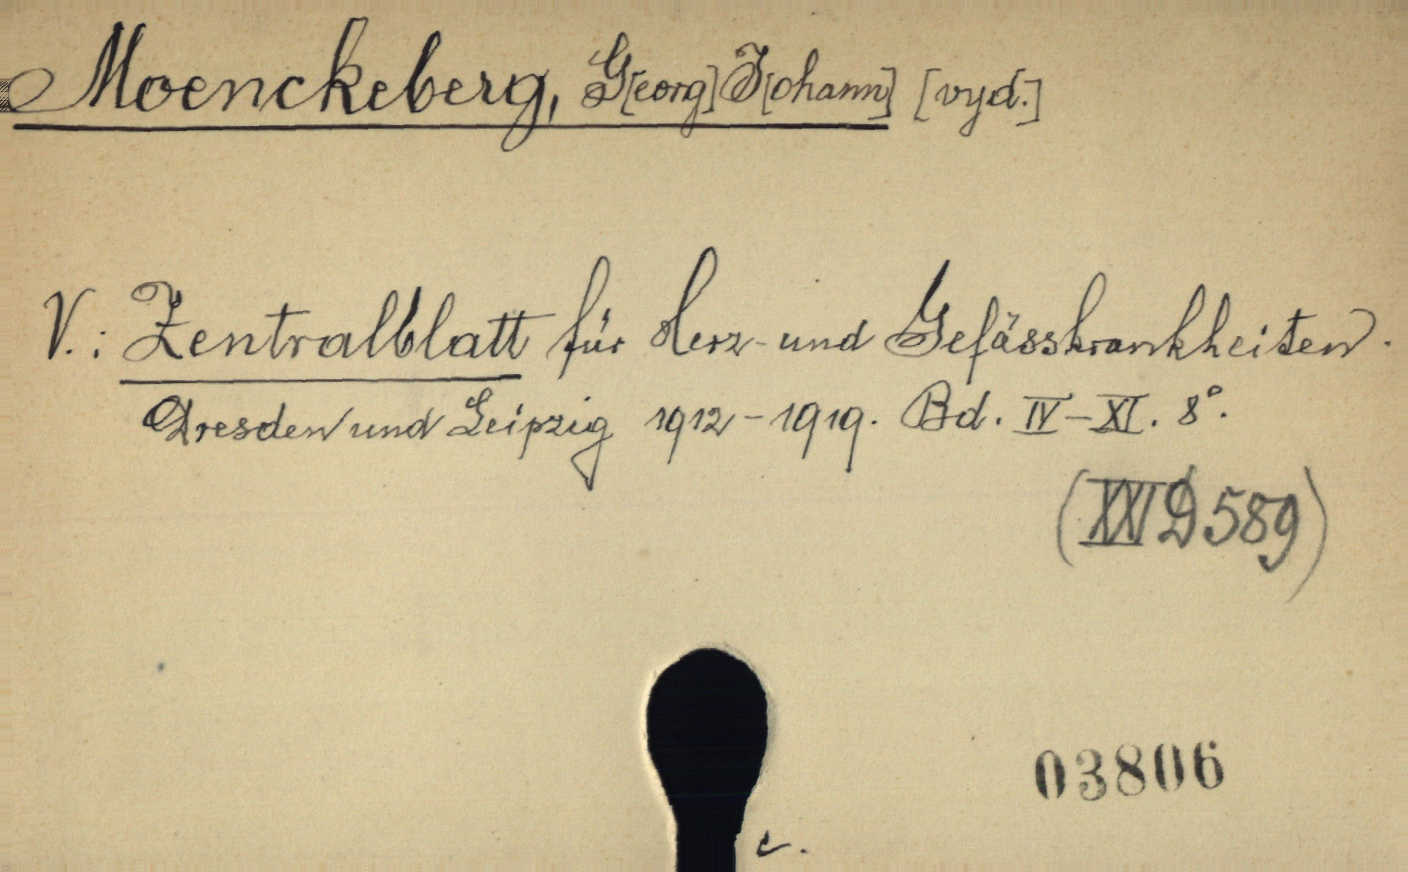 Moenckeberg, G[eorg] J[ohann] [vyd.]
V.: Zentralblatt für Herz- und Gefässkrankheiten.
Dresden und Leipzig 1912-1919. Bd. IV-XI. 8°.
(XXI D 589)
03806
c.